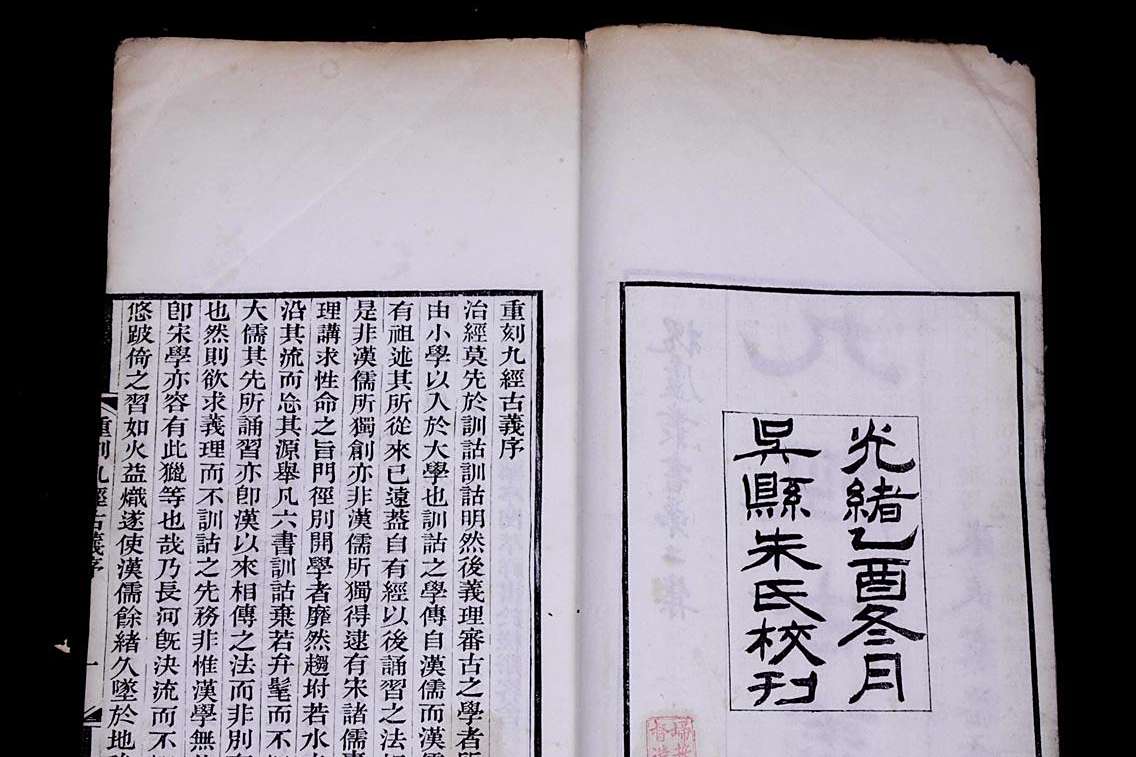 光緒乙酉冬月
吳縣朱氏校刊
重刻九經古義序
治經莫先於訓詁訓詁明然後義理審古之學者
由小學以入於大學也訓詁之學傳自漢儒而漢
有祖述其所從來已遠蓋自有經以後誦習之法
是非漢儒所獨創亦非漢儒所獨得逮有宋諸儒
理講求性命之旨門徑別開學者靡然趨坿若水
沿其流而忩其源舉凡六書訓詁棄若弁髦而不
大儒其先所誦習亦卽漢以來相傳之法而非別
也然則欲求義理而不訓詁之先務非惟漢學無
卽宋學亦容有此獵等也哉乃長河旣決流而不
悠跛倚之習如火益熾遂使漢儒餘緒久墜於地
重刻九經古義序
一